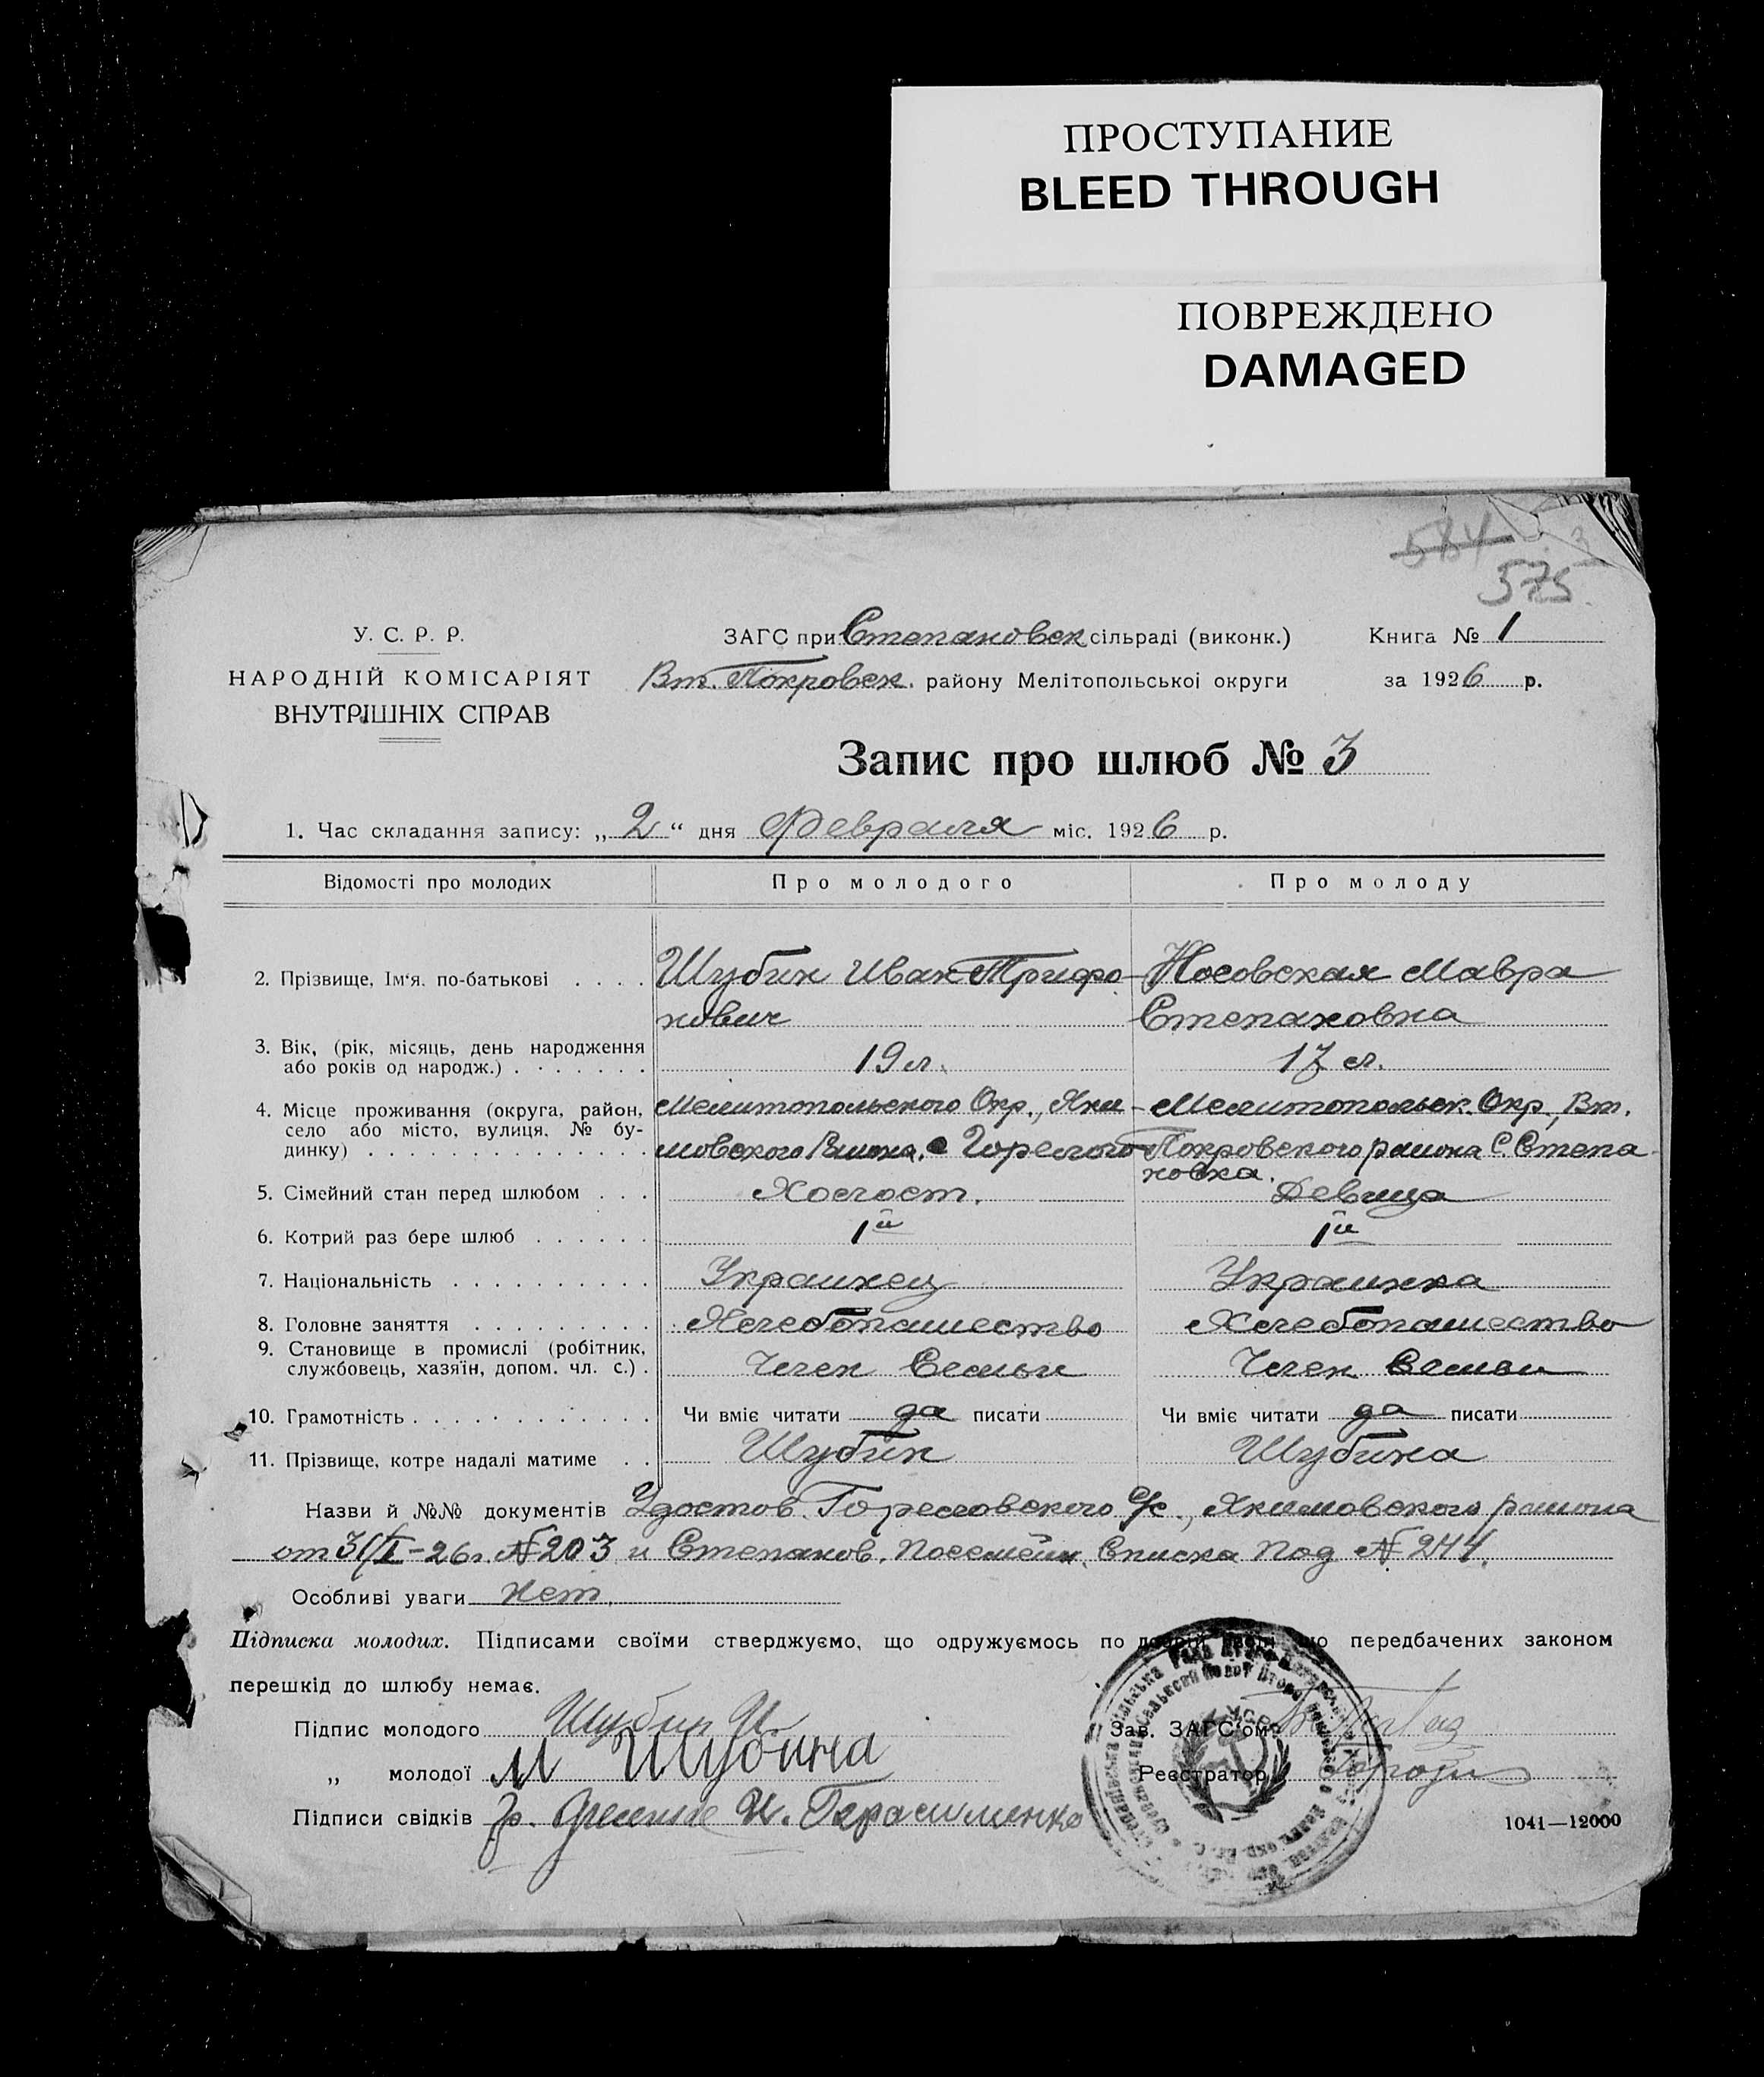 ПРОСТУПАНИЕ
BLEED THROUGH
ПОВРЕЖДЕНО
DAMAGED
584
575
У. С. Р. Р.
НАРОДНІЙ КОМІСАРІЯТ
ВНУТРІШНІХ СПРАВ
ЗАГС при Степановск сільраді (виконк.)
Вт. Покровск. району Мелітопольської округи
Книга № 1
за 1926 р.
Запис про шлюб № 3
1. Час складання запису: „ 2 “ дня Февраля міс. 1926 р.
Відомості про молодих Про молодого Про молоду
2. Прізвище, Ім‘я, по-батькові . . . . Шубин Иван Трифо- Носовская Мавра
нович Степановна
3. Вік, (рік, місяць, день народження
або років од народж.) . . . . . . . 19 л. 17 л.
4. Місце проживання (округа, район, Мелитопольского Окр., Яки- Мелитопольск. Окр., Вт.
село або місто, вулиця, № бу-
динку) . . . . . . . . . . . . . . мовского Района, с Горелого Покровского района С. Степа-
новка.
5. Сімейний стан перед шлюбом . . . Холост. Девица
6. Котрий раз бере шлюб . . . . . . 1й 1й
7. Національність . . . . . . . . . . Украинец Украинка
8. Головне заняття . . . . . . . . . Хлебопашество Хлебопашество
9. Становище в промислі (робітник,
службовець, хазяїн, допом. чл. с.) . Член Семьи Член Семьи
10. Грамотність . . . . . . . . . . . . Чи вміє читати да писати Чи вміє читати да писати
11. Прізвище, котре надалі матиме . . Шубин Шубина
Назви й №№ документів Удостов. Гореловского с/с., Якимовского района
от 31/I-26г. № 203 и Степанов. Посемейн. Списка Под № 244.
Особливі уваги нет.
Підписка молодих. Підписами своїми стверджуємо, що одружуємось по добрій що передбачених законом
перешкід до шлюбу немає.
Підпис молодого Шубин И.
Зав. ЗАГС‘ом
„ молодої М Шубина
Реєстратор
Підписи свідків И. Герасименко
1041—12000